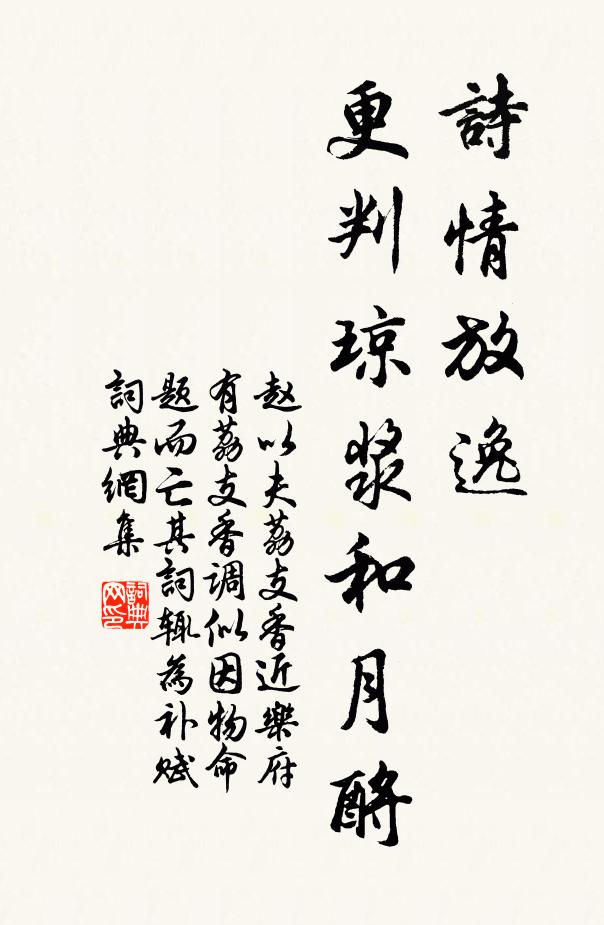 詩情放逸
更判琼漿和月醑
赵以夫荔支香近樂府
有荔支香调似因物命
题而亡其詞辄為补赋
詞典網集
詞典网印